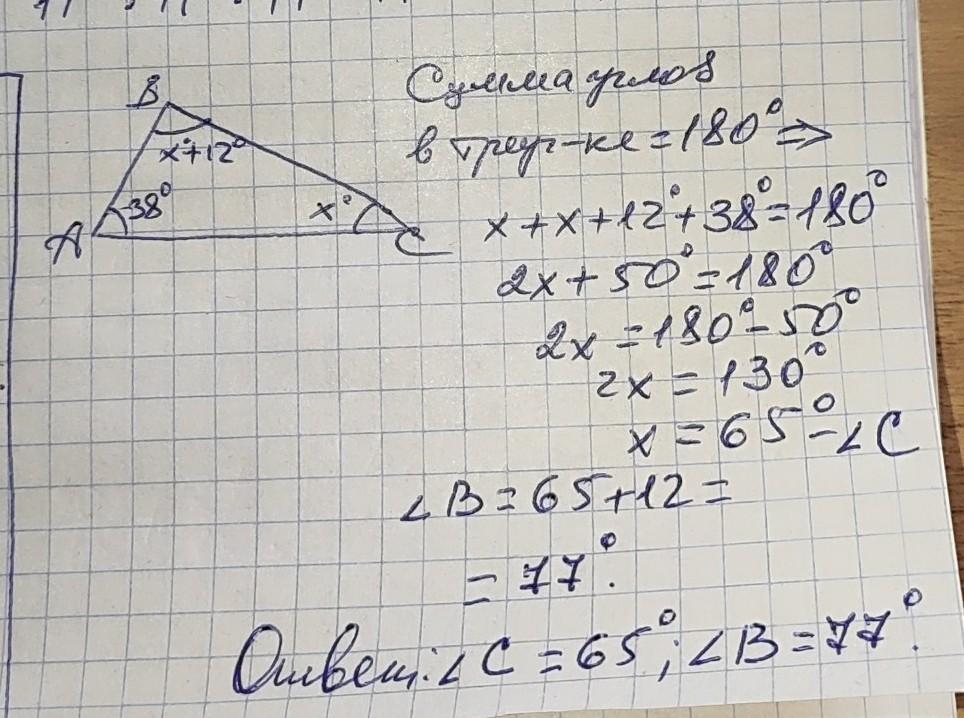 B
x°+12°
38°
x°
A
C
Сумма углов
в треуг-ке = 180° ⇒
x + x + 12° + 38° = 180°
2x + 50° = 180°
2x = 180° - 50°
2x = 130°
x = 65° - ∠C
∠B = 65 + 12 =
= 77°.
Ответ: ∠C = 65°; ∠B = 77°.